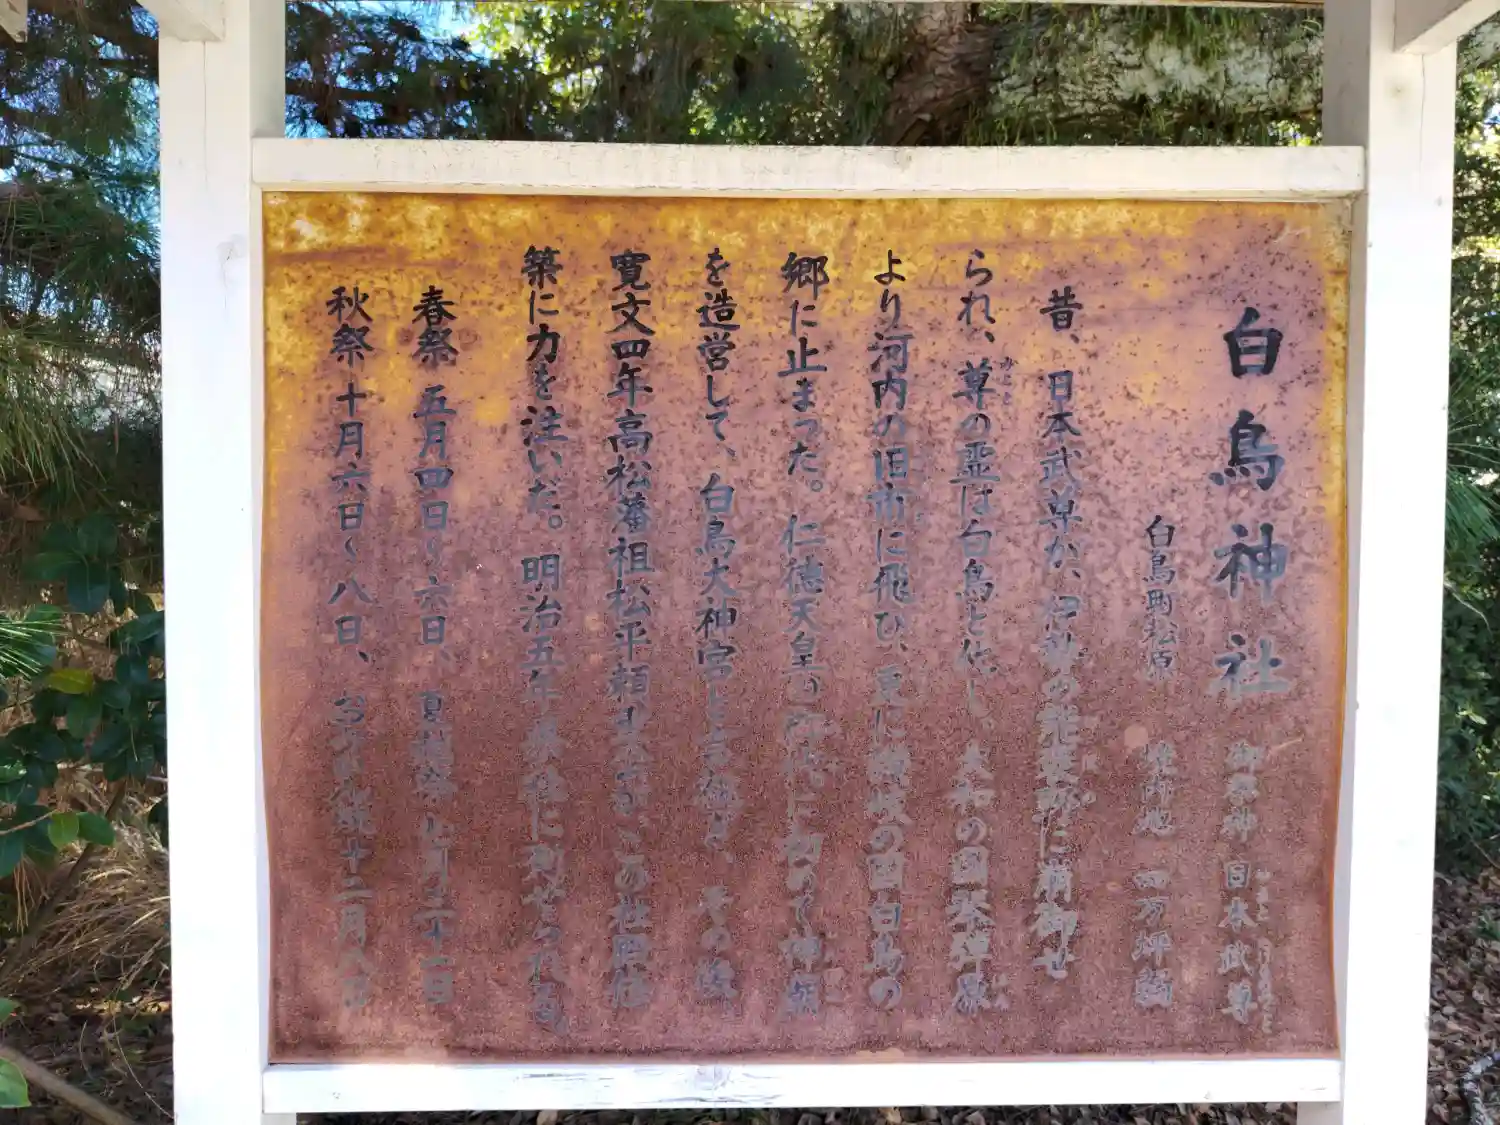 白鳥神社 御祭神 日本武尊
白鳥町松原 境内地 四万坪編
昔、日本武尊が、伊勢の能褒野に崩御せ
られ、尊の霊は白鳥と化し、大和の国琴弾原
より河内の旧市に飛び、更に讃岐の国白鳥の
郷に止まった。仁徳天皇の御代に初めて神廟
を造営して、白鳥大神宮と言働き、その後
寛文四年高松藩祖松平頼重
築に力を注いだ。明治五年県社に列せられる。
春祭 五月四日〜六日、夏越祭 七月三十一日
秋祭 十月六日〜八日、十二月八日